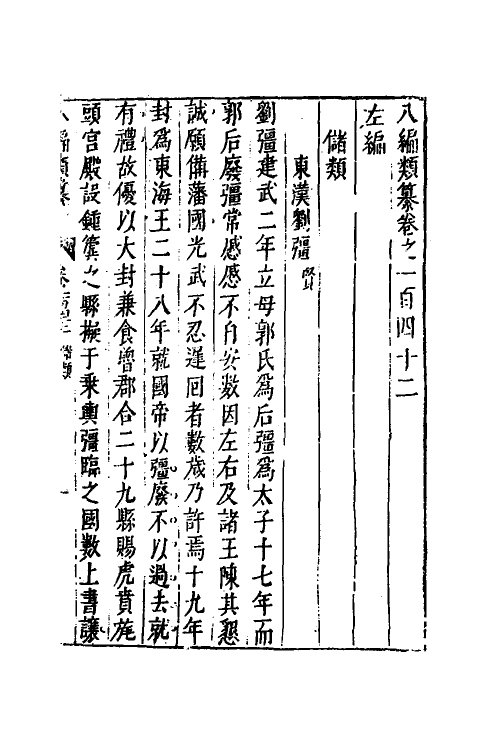 八編類纂卷之一百四十二
左編
儲類
東漢劉彊 賢
劉彊建武二年立母郭氏爲后彊爲太子十七年而
郭后廢彊常慼慼不自安數因左右及諸王陳其懇
誠願備藩國光武不忍遲囘者數歲乃許焉十九年
封爲東海王二十八年就國帝以彊廢不以過去就
有禮故優以大封兼食魯郡合二十九縣賜虎賁旄
頭宮殿設鍾簴之縣擬于乘輿彊臨之國數上書讓
八編類纂 卷 儲類 一